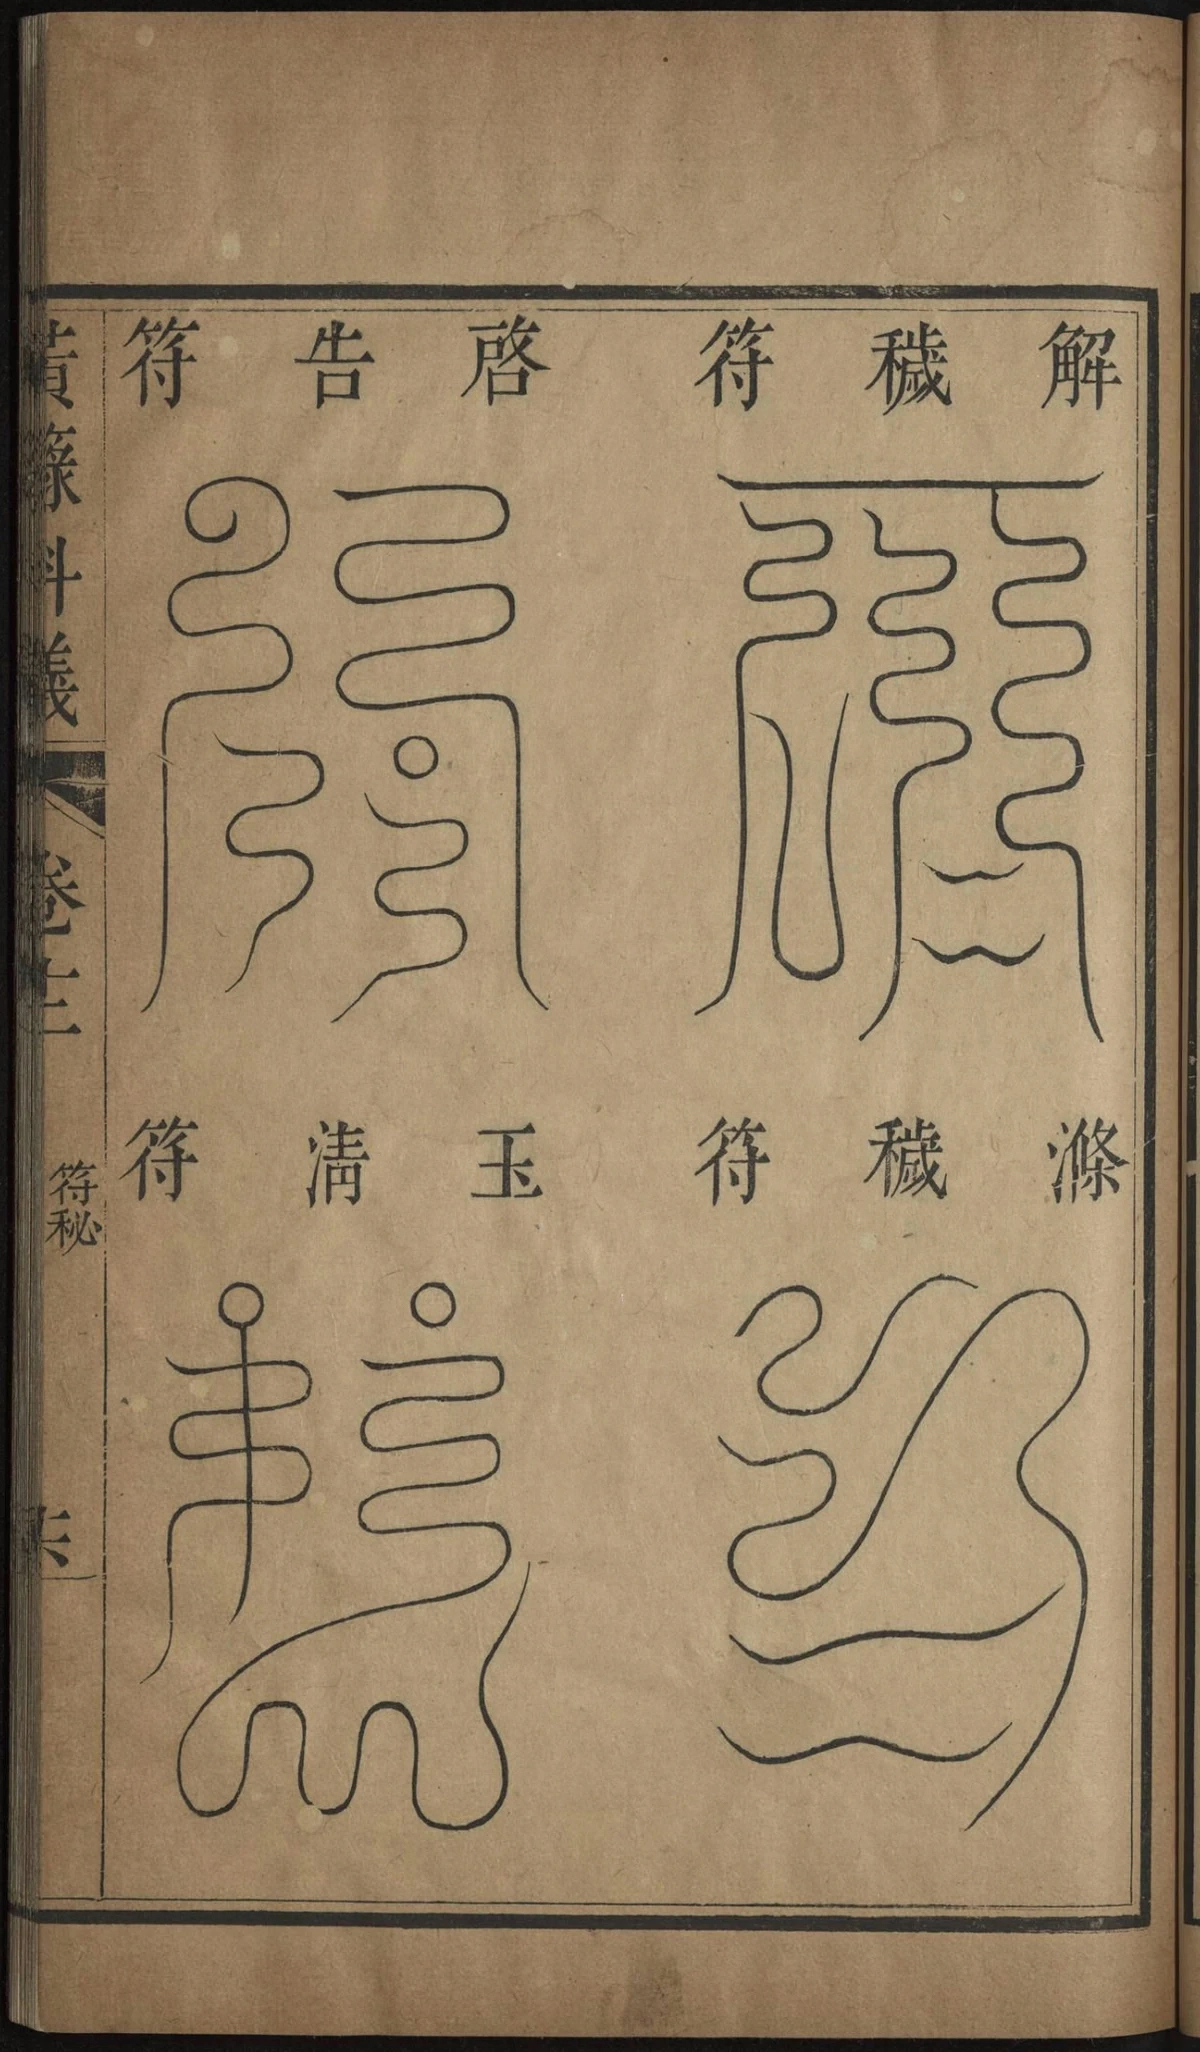 解穢符
啓告符
滌穢符
玉清符
黃籙科儀
卷十二
符秘